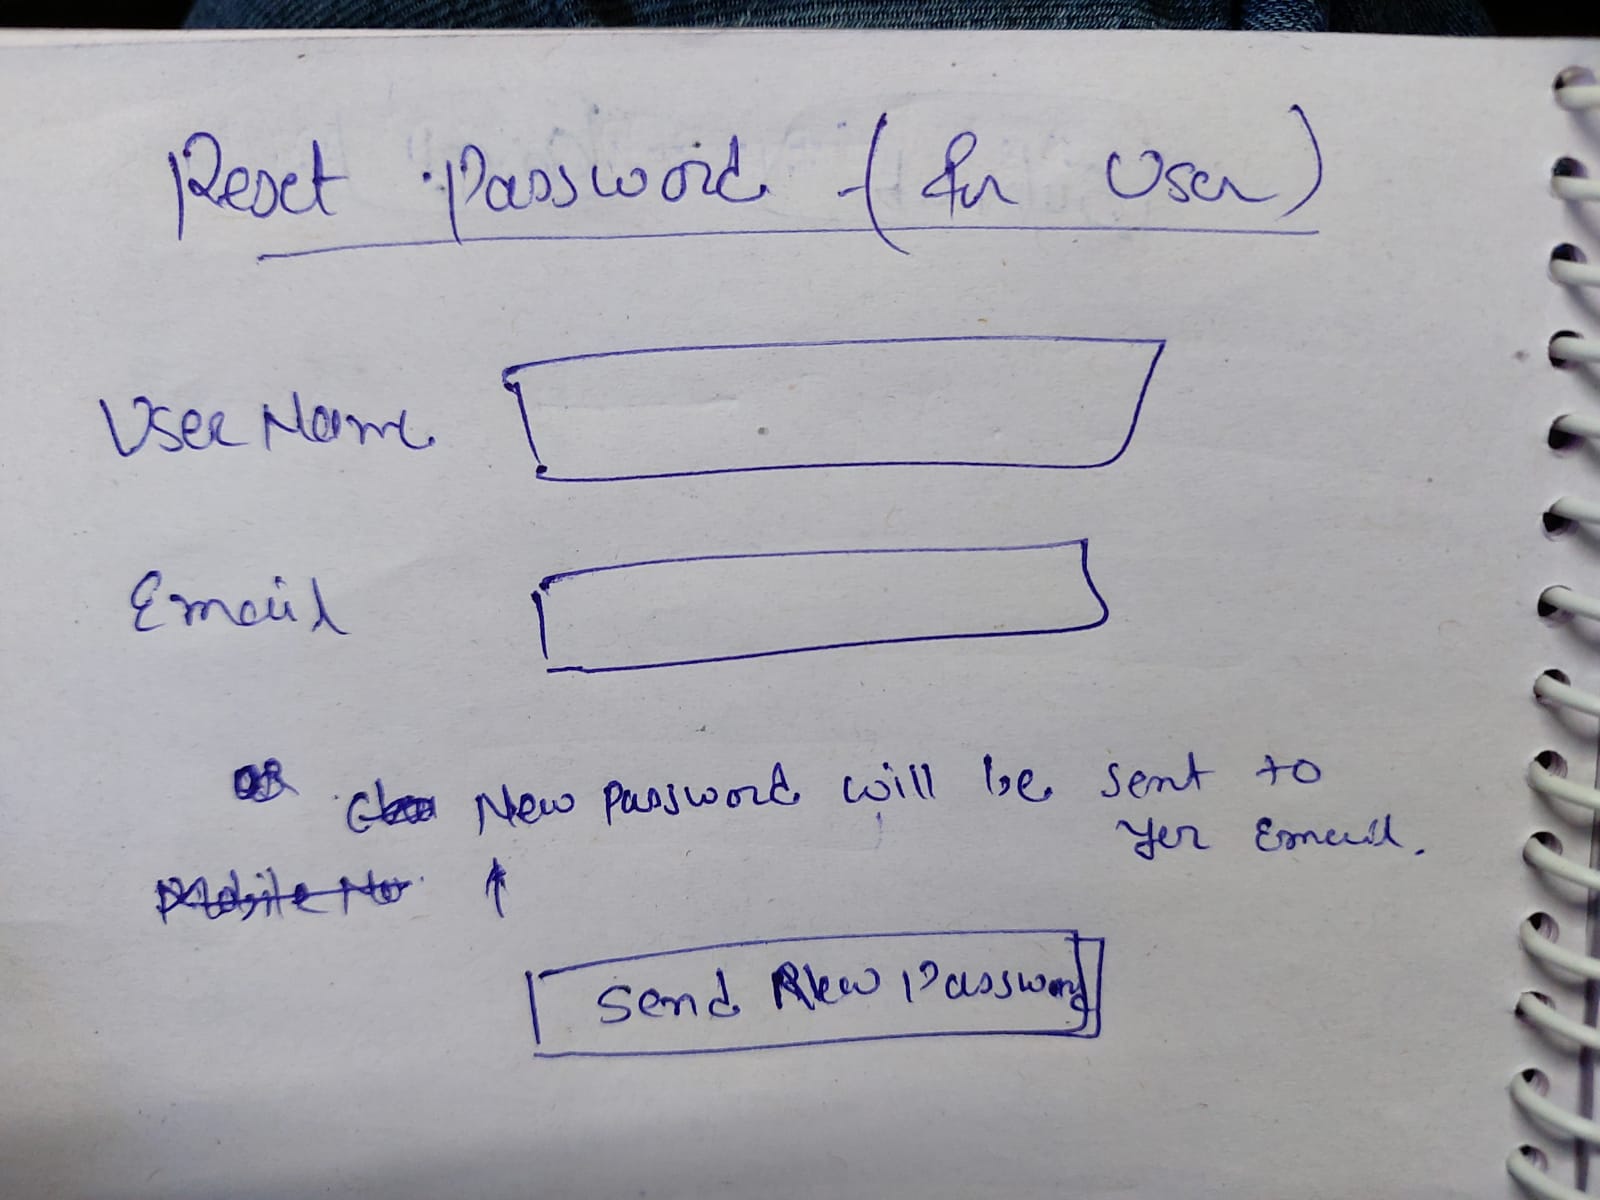 Reset Password (for User)
User Name
Email
OR New password will be sent to
yer Email.
Mobile No.
Send New Password